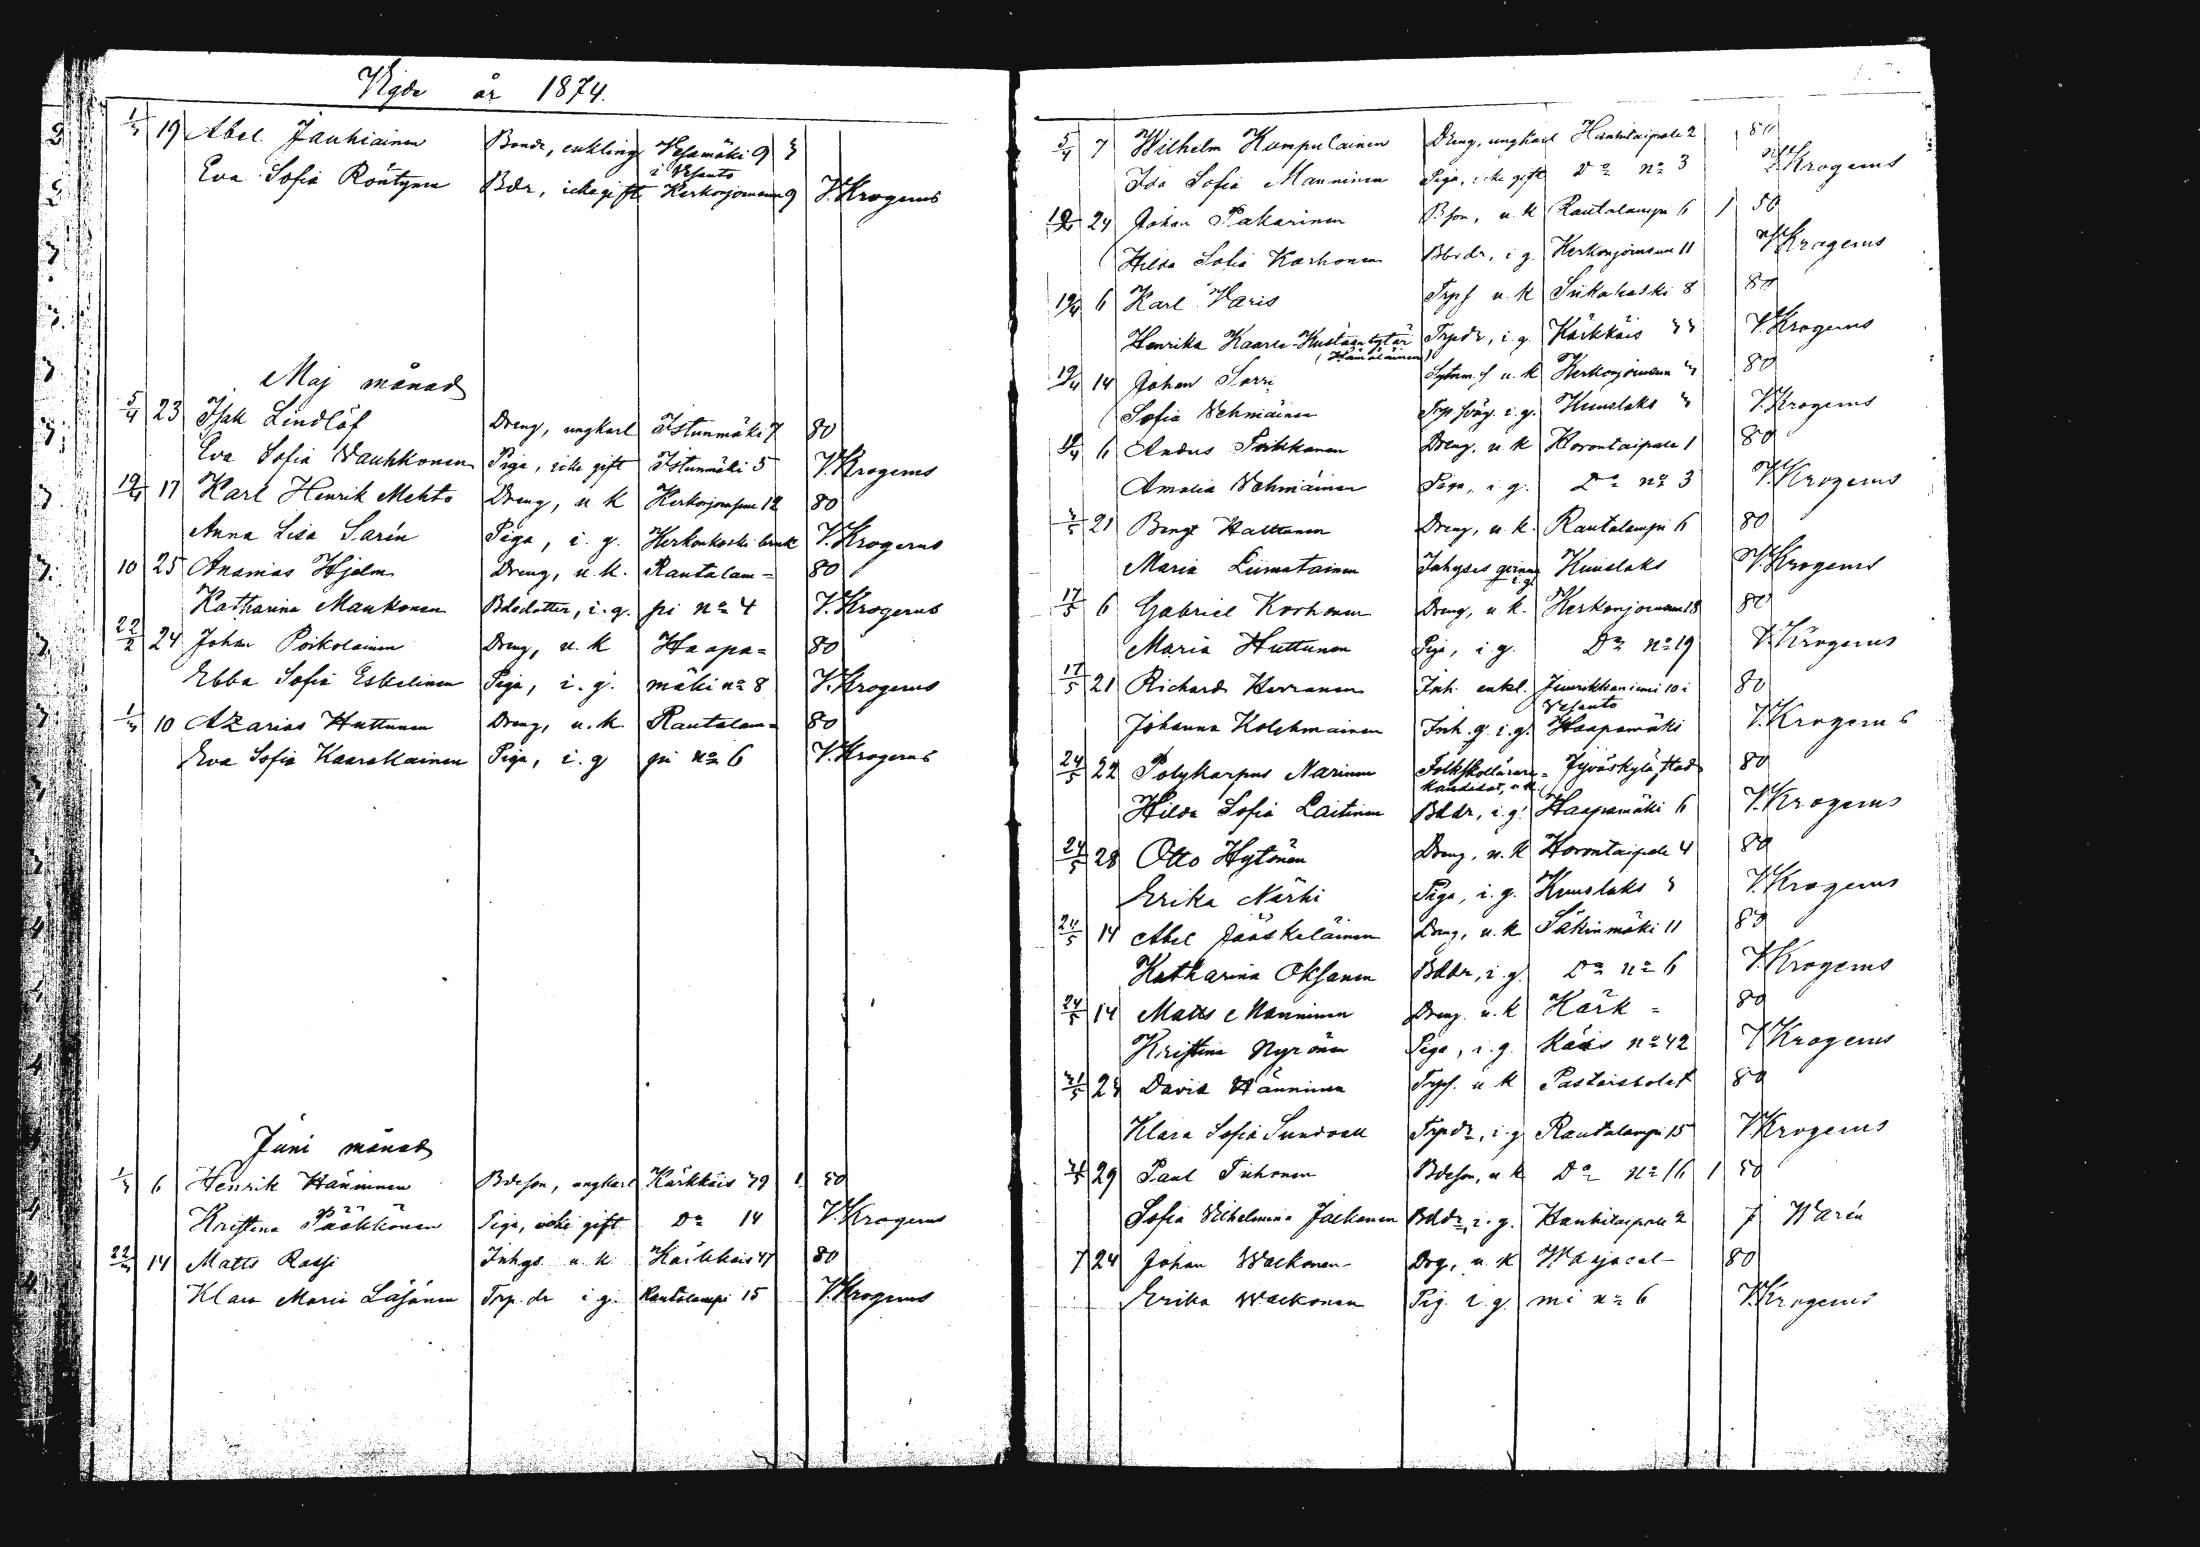 Vigde år 1874.
1/3 19 Abel Jauhiainen Bonde, enkling Vesamäki 9 3
i Vesanto
Eva Sofia Röntynen Bdr, icke gift Kerkonjoensuu 9 V. Krogerus
Maj månad
5/4 23 Isak Lindlöf Dreng, ungkarl Istunmäki 7 80
Eva Sofia Vauhkonen Piga, icke gift Istunmäki 5 V. Krogerus
19/4 17 Karl Henrik Mehto Dreng, u. k Kerkonjoensuu 12 80
Anna Lisa Sarin Piga, i. g. Kerkonkoski bruk V. Krogerus
10 25 Ananias Hjelm Dreng, u. k. Rautalam= 80
Katharina Maukonen Bdedotter, i. g. pi no 4 V. Krogerus
22/2 24 Johan Poikolainen Dreng, u. k Haapa= 80
Ebba Sofia Eskelinen Piga, i. g. mäki no 8 V. Krogerus
1/3 10 Azarias Huttunen Dreng, u. k Rautalam= 80
Eva Sofia Kaarakainen Piga, i. g pi no 6 V. Krogerus
Juni månad
1/3 6 Henrik Hänninen Bdeson, ungkarl Kärkkäis 39 1 50
Kristina Pääkkönen Piga, icke gift Do 14 V. Krogerus
22/3 14 Matts Rossi Inhys u. k. Kärkkäis 47 80
Klara Maria Läsänen Trp. dr i. g. Rautalampi 15 V. Krogerus
5/4 7 Wilhelm Kumpulainen Dreng, ungkarl Hankitaipale 2 80
Ida Sofia Manninen Piga, icke gift Do no 3 V. Krogerus
12/4 24 Johan Pakarinen B.son, u. k Rautalampi 6 1 50
Hilda Sofia Korhonen Bbrdr, i g. Kerkonjoensuu 11 V. Krogerus
19/4 6 Karl Varis Trpf u. k Siikakoski 8 80
Henrika Kaarle-Kustaantytär Trpdr, i. g. Kärkkäis 33 V. Krogerus
(Hämäläinen)
19/4 14 Johan Sorri u. k Kerkonjoensuu 80
Sofia Vehmäinen i. g. Kuuslaks V. Krogerus
19/4 6 Anders Poikkonen Dreng, u. k Horontaipale 1 80
Amalia Vehmäinen Piga, i. g. Do no 3 V. Krogerus
3/5 21 Bengt Halttunen Dreng, u. k. Rautalampi 6 80
Maria Liimatainen Inhyses qvinna i. g. Kuuslaks V. Krogerus
17/5 6 Gabriel Korhonen Dreng, u. k. Kerkonjoensuu 18 80
Maria Huttunen Piga, i. g. Do no 19 V. Krogerus
17/5 21 Richard Herranen Inh. enkl. Junrikkaniemi 10 i 80
Vesanto
Johanna Kolehmainen Inh. q. i. g. Haapamäki V. Krogerus
24/5 22 Polykarpus Narinen Folkskollärare= Jyväskylä stad 80
kandidat, u. k.
Hilda Sofia Laitinen Bddr, i. g. Haapamäki 6 V. Krogerus
24/5 28 Otto Hytönen Dreng, u. k Horontaipale 4 80
Erika Närhi Piga, i. g. Kuuslaks 3 V. Krogerus
24/5 14 Abel Jääskeläinen Dreng, u. k Säkinmäki 11 80
Katharina Oksanen Bddr, i. g. Do no 6 V. Krogerus
24/5 14 Matts Manninen Dreng. u. k Kärk= 80
Kristina Nyrönen Piga, i. g. käis no 42 V. Krogerus
31/5 23 David Hänninen Trpf. u. k Pastorsbolet 80
Klara Sofia Sundvall Trpdr, i. g Rautalampi 15 V. Krogerus
29 Paul Tiihonen Bdeson, u. k Do no 16 1 50
Sofia Vilhelmina Jalkanen Bddr, i. g. Hankitaipale 2 J Warén
7 24 Johan Wackonen Drg, u. k Warjacal- 80
Erika Wackonen Pig. i. g. mi no 6 V. Krogerus